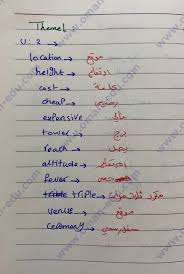 Theme1
U: 2 →
location → موقع
height → ارتفاع
cost → تكلفة
cheap → رخيص
expensive غالي
tower → برج
reach → يصل
altitude → ارتفاع
fewer →
triple triple →
venue → موقع
ceremony →